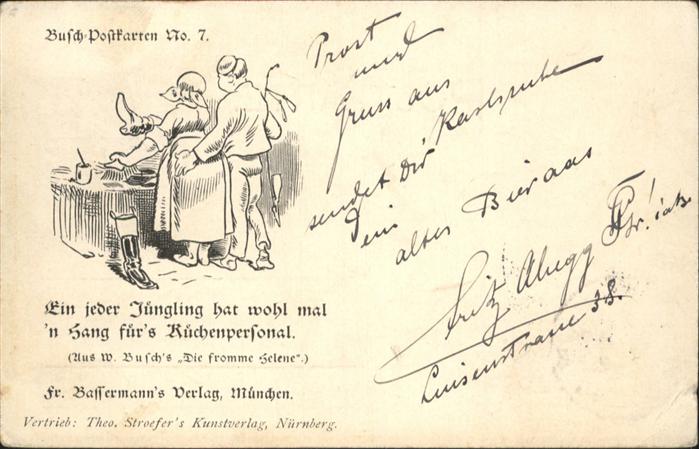 Busch-Postkarten No. 7.
Prost
und
Gruss aus
Karlsruhe
sendet Dir
Dein
alter Bieraas
Fritz Abegg
Luisenstrasse 38.
Ein jeder Jüngling hat wohl mal
'n Hang für's Küchenpersonal.
(Aus W. Busch's „Die fromme Helene“.)
Fr. Bassermann's Verlag, München.
Vertrieb: Theo. Stroefer's Kunstverlag, Nürnberg.